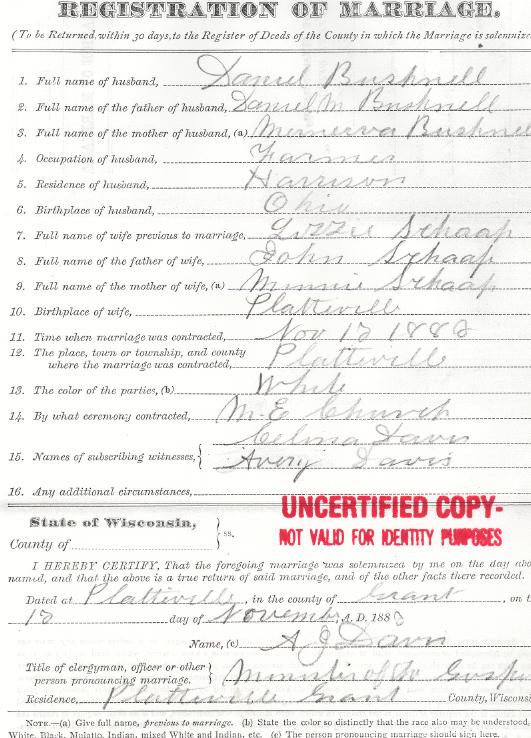 REGISTRATION OF MARRIAGE.
(To be Returned, within 30 days, to the Register of Deeds of the County in which the Marriage is solemnize
1. Full name of husband, Daniel Bushnell
2. Full name of the father of husband, Daniel M Bushnell
3. Full name of the mother of husband, (a) Minerva Bushnel
4. Occupation of husband, Farmer
5. Residence of husband, Harrison
6. Birthplace of husband, Ohio
7. Full name of wife previous to marriage, Lizzie Schaap
8. Full name of the father of wife, John Schaap
9. Full name of the mother of wife, (a) Minnie Schaap
10. Birthplace of wife, Platteville
11. Time when marriage was contracted, Nov 12 1883
12. The place, town or township, and county
where the marriage was contracted, Platteville
13. The color of the parties, (b) White
14. By what ceremony contracted, M. E Church
Celma Davis
15. Names of subscribing witnesses, Avery Davis
16. Any additional circumstances,
UNCERTIFIED COPY-
NOT VALID FOR IDENTITY PURPOSES
State of Wisconsin,
County of ss.
I HEREBY CERTIFY, That the foregoing marriage was solemnized by me on the day abo
named, and that the above is a true return of said marriage, and of the other facts there recorded.
Dated at Platteville, in the county of Grant, on t
12 day of November A. D. 1883
Name, (c) A J Davis
Title of clergyman, officer or other
person pronouncing marriage. Minister of the Gospe
Residence, Platteville Grant County, Wisconsi
NOTE.—(a) Give full name, previous to marriage. (b) State the color so distinctly that the race also may be understood,
White, Black, Mulatto, Indian, mixed White and Indian, etc. (c) The person pronouncing marriage should sign here.